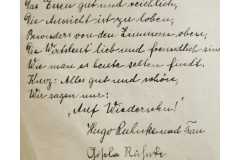 Das Essen gut und reichlich,
Die Aussicht ist zu loben,
Besonders von den Zimmern oben,
Das Wirtsleut lieb und freundlich sind
Wie man es heute selten findt.
Kurz: Alles gut und schön,
Wir sagen nur:
"Auf Wiedersehn!"
Hugo Ruhnke und Frau
Gisela Ruhnke